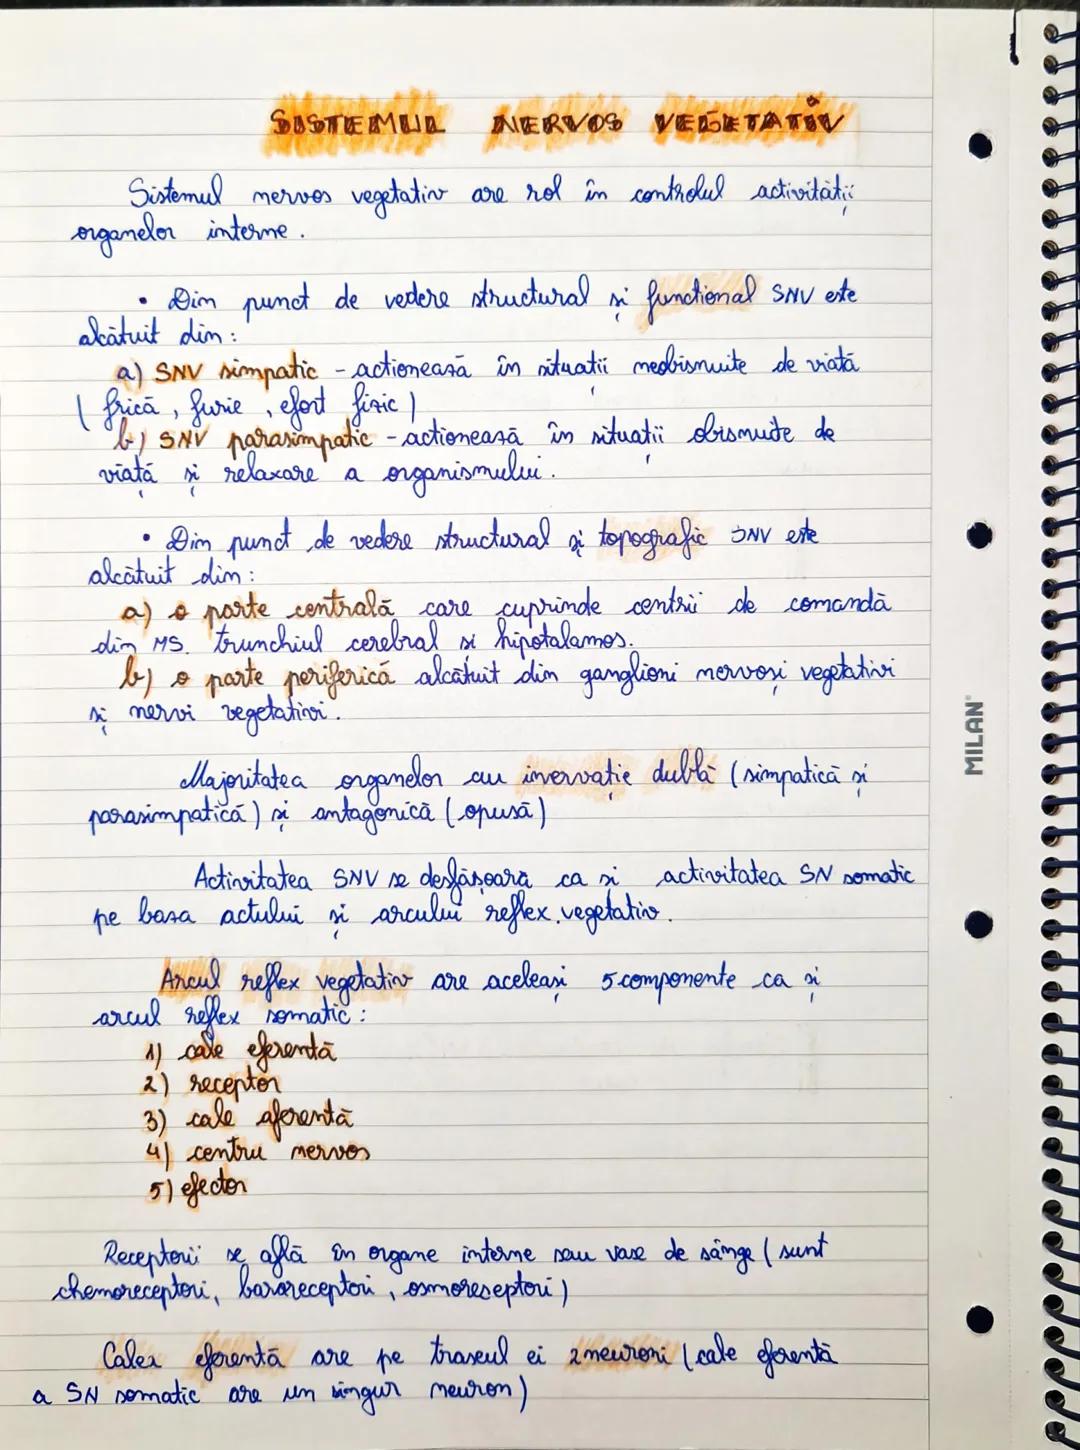 SISTEMUL NERVOS VEGETATIV
Sistemul nervos vegetativ are rol în controlul activității
organelor interne.
• Din punct de vedere structural și functional SNV este
alcătuit din:
a) SNV simpatic - actionează în situatii neobisnuite de viată
( frică, furie, efort fizic )
b) SNV parasimpatic - actionează în situatii obisnuite de
viață și relaxare a organismului.
• Din punct de vedere structural și topografic SNV este
alcătuit din:
a) o parte centrală care cuprinde centrii de comandă
din MS. trunchiul cerebral si hipotalamos.
b) o parte periferică alcătuit din ganglioni nervosi vegetativi
și nervi vegetativi.
Majoritatea organelor au invervație dublă (simpatică și
parasimpatică) și antagonică (opusă)
Activitatea SNV se desfășoară ca si activitatea SN somatic
pe baza actului și arcului reflex vegetativ.
Arcul reflex vegetativ are aceleași 5 componente ca și
arcul reflex somatic:
1) cale eferentă
2) receptor
3) cale aferentă
4) centru nervos
5) efector
Receptorii se află în organe interne sau vase de sânge ( sunt
chemoreceptori, baroreceptori, osmoreseptori )
Calea eferentă are pe traseul ei 2 neuroni ( cale eferentă
a SN somatic are un singur neuron )
MILAN